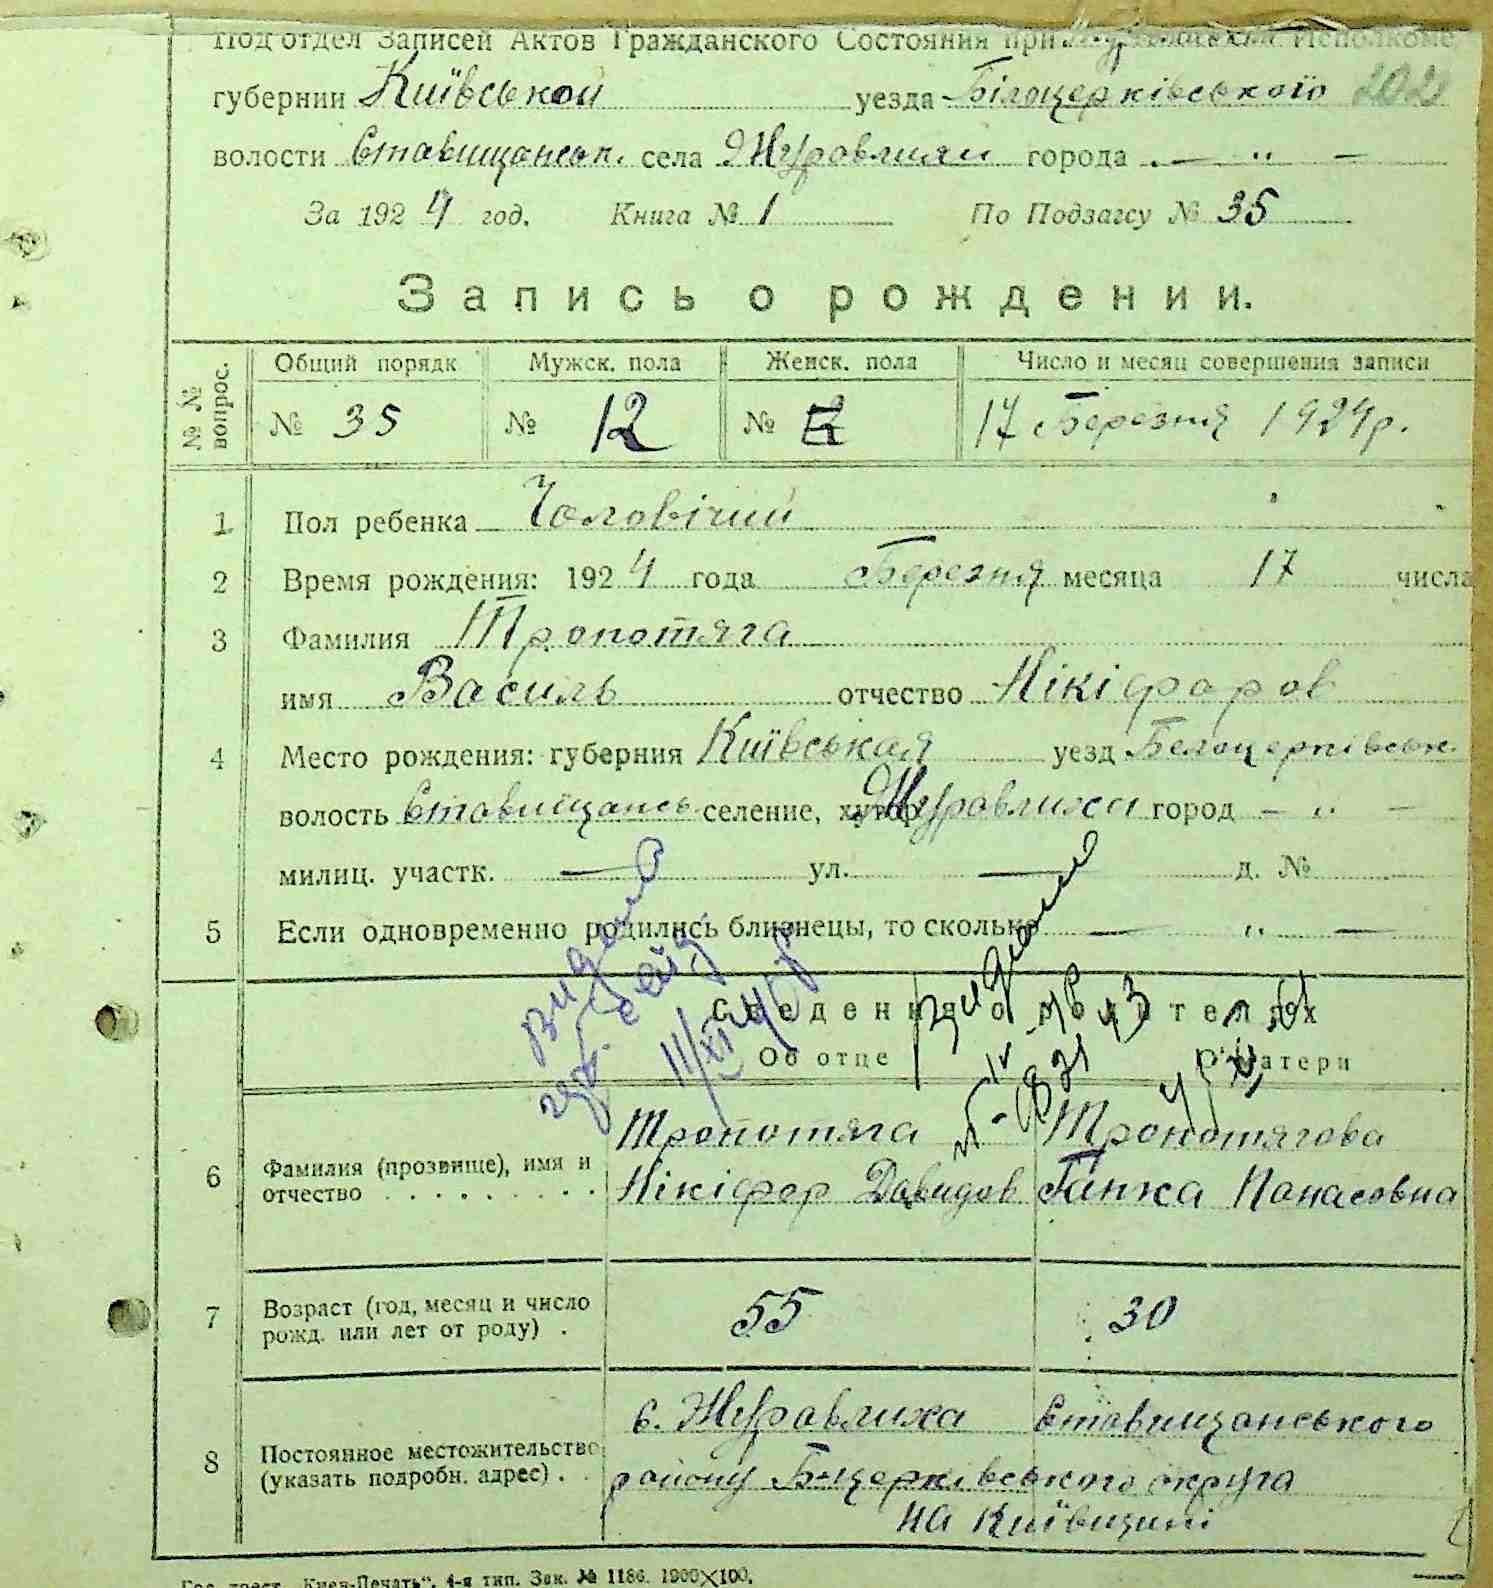 Под отдел Записей Актов Гражданского Состояния при Исполкоме
губернии Київськой уезда Білоцерківського 202
волости Ставищанськ. села Журавлихи города . — " —
За 1924 год. Книга № 1 По Подзагсу № 35
Запись о рождении.
№ № вопрос. Общий порядк Мужск. пола Женск. пола Число и месяц совершения записи
№ 35 № 12 № 17 Березня 1924 р.
1 Пол ребенка Чоловічий
2 Время рождения: 1924 года Березня месяца 17 числа
3 Фамилия Тропотяга
имя Василь отчество Нікіфоров
4 Место рождения: губерния Київськая уезд Белоцерківськ.
волость Ставищансь селение, хутор Журавлиха город — " —
милиц. участк. — ул. — д. №
5 Если одновременно родились близнецы, то сколько — " —
Сведения о родителях
Об отце О матери
видано
11/XI
видано
6 Фамилия (прозвище), имя и отчество Тропотяга Тропотягова
Нікіфор Давидов Ганка Панасовна
7 Возраст (год, месяц и число рожд. или лет от роду) . 55 30
8 Постоянное местожительство (указать подробн. адрес) . с. Журавлиха Ставищанського
району Б-церківського округа
на Київщині
Гос. трест „Киев-Печать“. 4-я тип. Зак. № 1186. 1900×100.